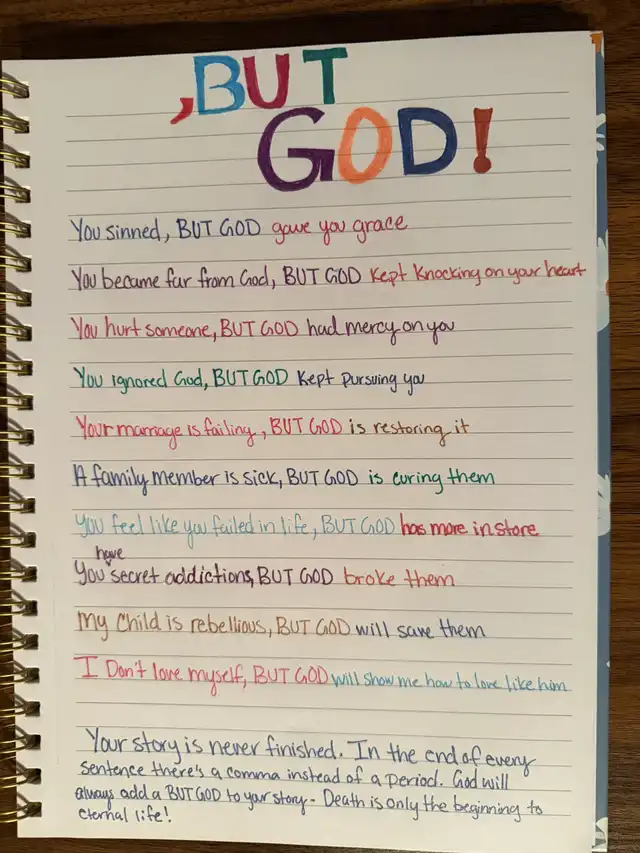 ,BUT
GOD!
You sinned, BUT GOD gave you grace
You became far from God, BUT GOD Kept Knocking on your heart
You hurt someone, BUT GOD had mercy on you
You ignored God, BUT GOD Kept Pursuing you
Your marriage is failing, BUT GOD is restoring it
A family member is sick, BUT GOD is curing them
You feel like you failed in life, BUT GOD has more in store
have
You secret addictions, BUT GOD broke them
My Child is rebellious, BUT GOD will save them
I Don't love myself, BUT GOD will show me how to love like him
Your story is never finished. In the end of every
sentence there's a comma instead of a period. God will
always add a BUT GOD to your story - Death is only the beginning to
eternal life!